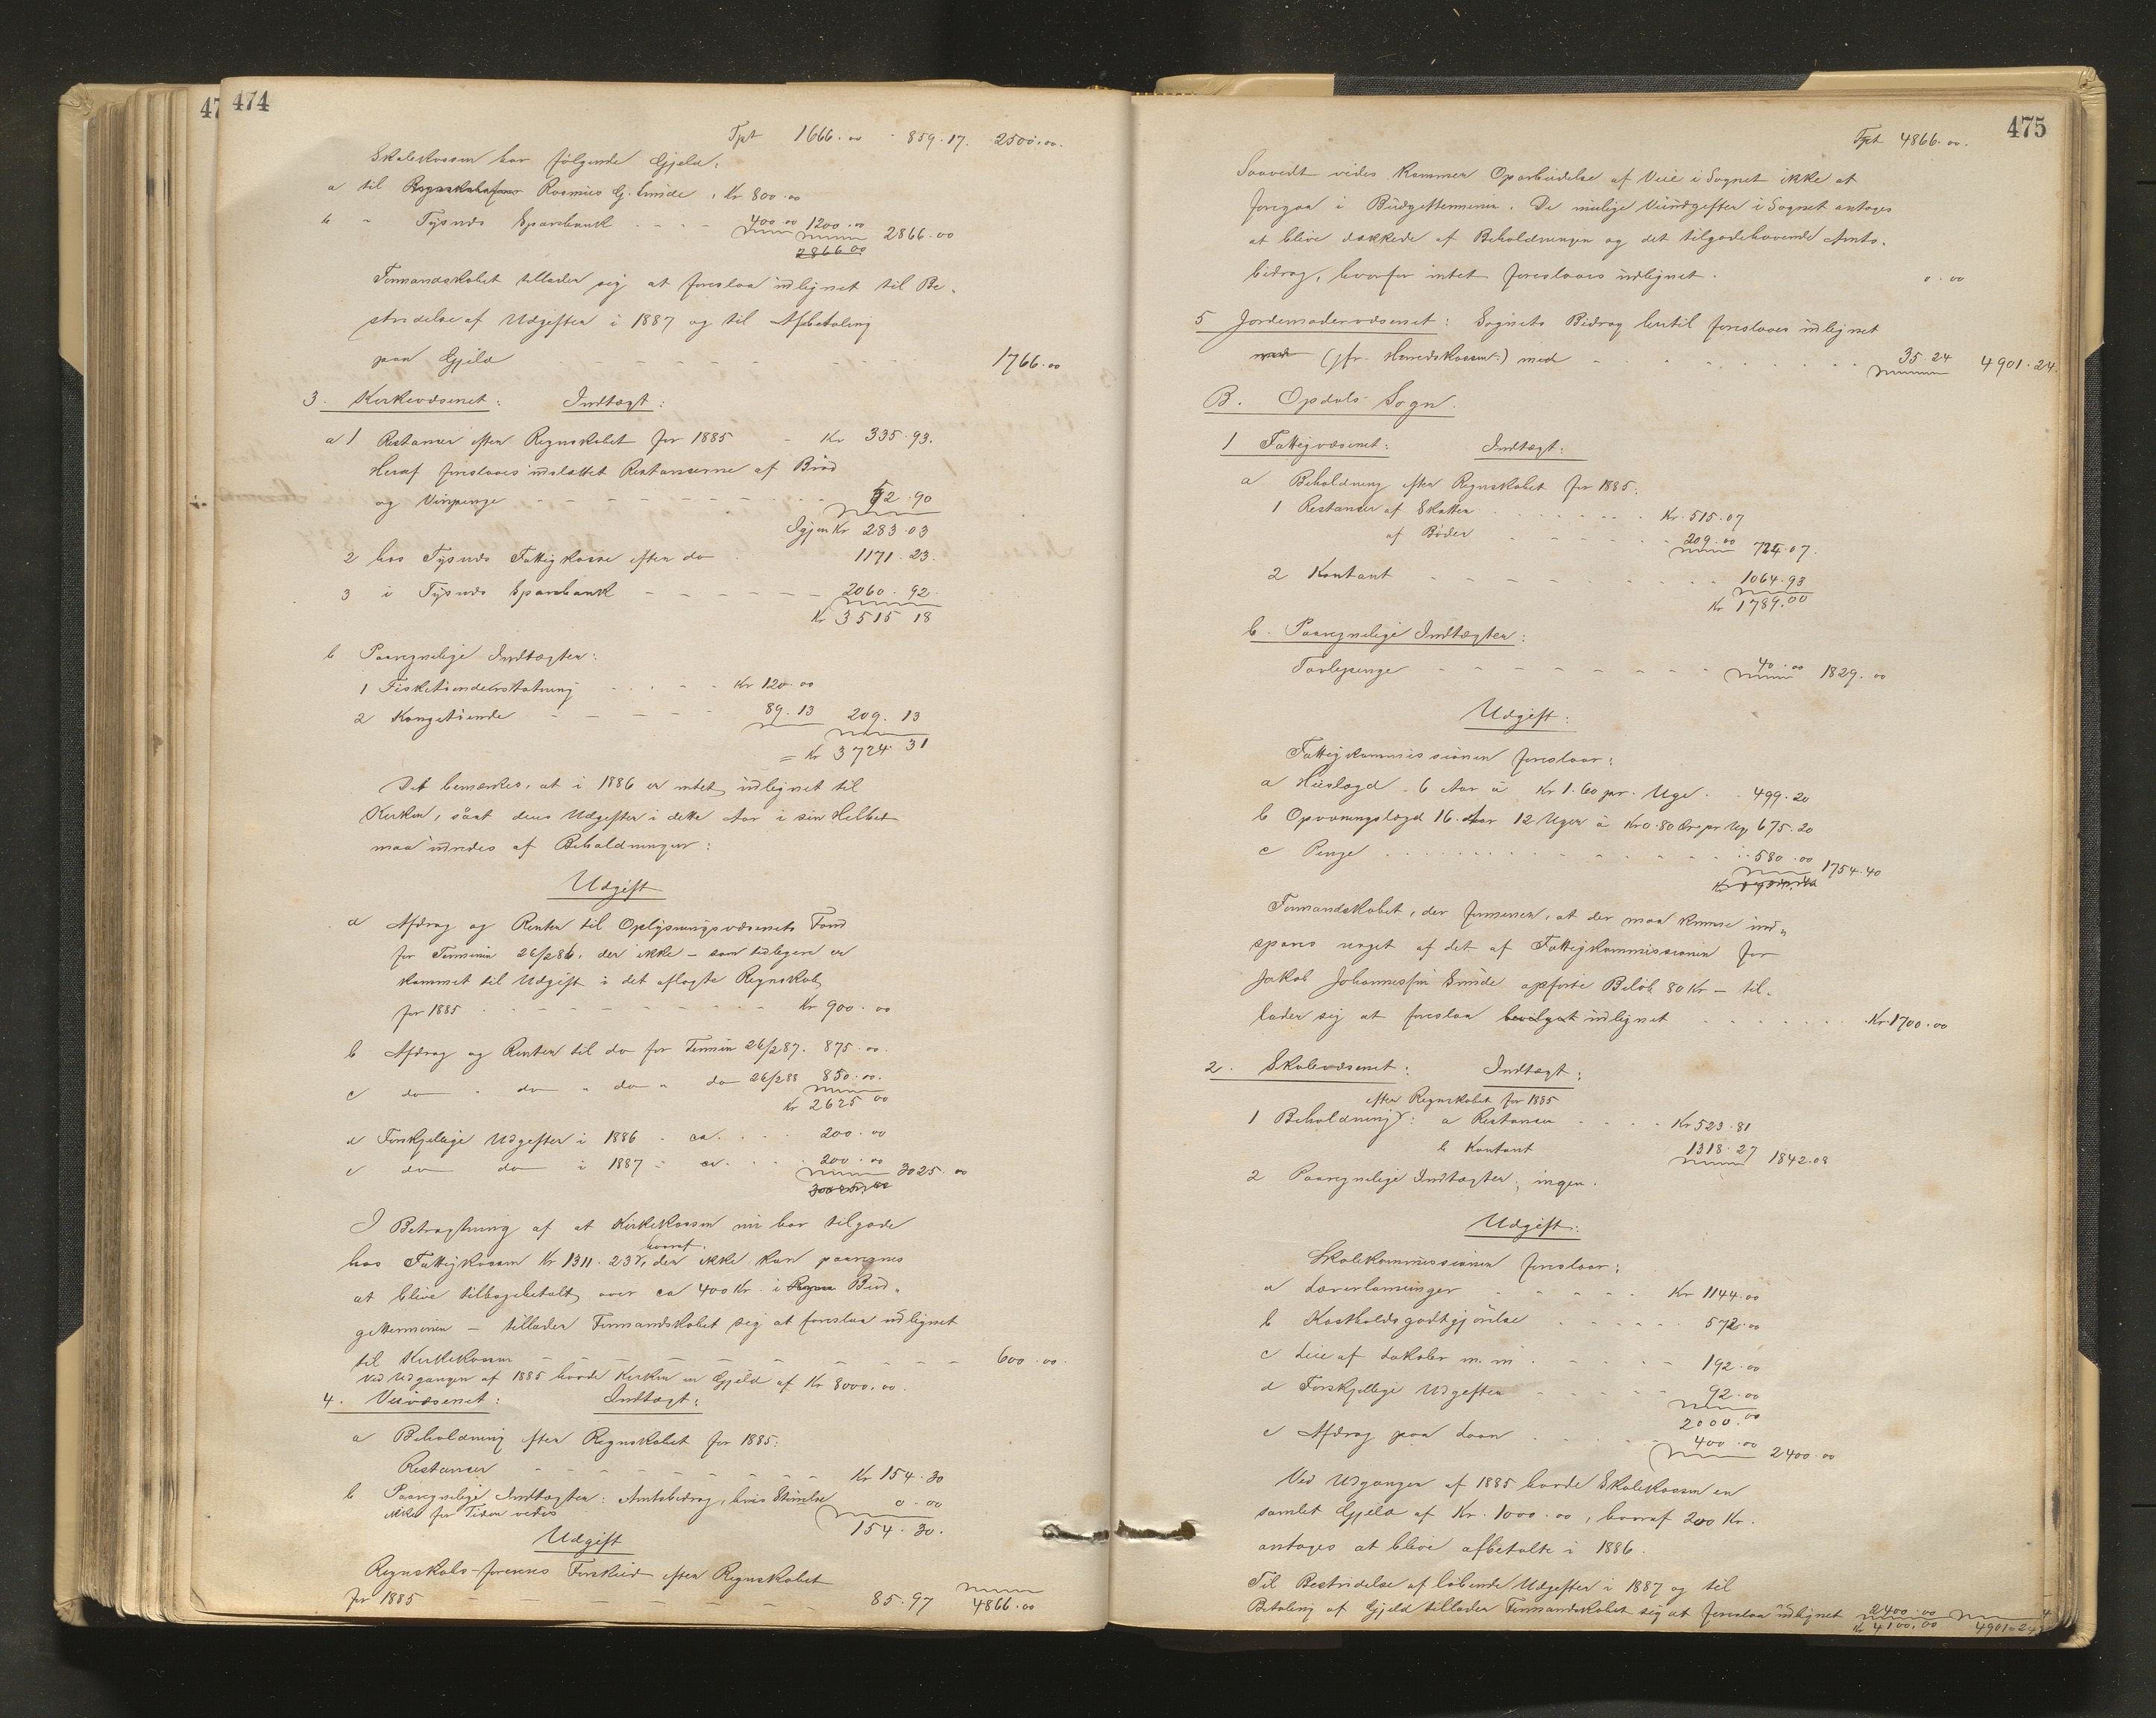 474
Tpt 1666.00 859.17. 2500.00.
Skolekassen har følgende Gjeld:
a til Regnskabsfører Rasmus G. Sunde, Kr 800.00
b " Tysnes Sparebank . . . . 400.00 1200.00 2866.00
2866 00
Formandskabet tillader sig at foreslaa udlignet til Be-
stridelse af Udgifter i 1887 og til Afbetaling
paa Gjeld 1766.00
3. Kirkevæsenet: Indtægt:
a 1 Restancer efter Regnskabet for 1885 - Kr 335.93.
Heraf foreslaaes udslettet Restancerne af Brød
og Vinpenge 52.90
Igjen Kr 283.03
2 hos Tysnes Fattigkasse efter do 1171.23.
3 i Tysnes Sparebank 2060.92.
Kr 3515 18
b Paaregnelige Indtægter:
1 Fisketiendeerstatning Kr 120.00
2 Kongetiende 89.13 209.13
= Kr 3724.31
Det bemærkes, at i 1886 er intet udlignet til
Kirken, saat dens Udgifter i dette Aar i sin Helhet
maa udredes af Beholdningen:
Udgift
a Afdrag og Renter til Oplysningsvæsenets Fond
for Termin 26/2 86, der ikke - som tidligere er
kommet til Udgift i det aflagte Regnskab
for 1885 Kr 900.00
b Afdrag og Renter til do for Termin 26/2 87. 875.00.
c do " do " do " do 26/2 88 850.00.
Kr 2625 00
d Forskjellige Udgifter i 1886 . ca. 200.00
e do do i 1887 - ca. 200.00 3025.00
I Betragtning af at Kirkekassen nu har tilgode
hos Fattigkassen Kr 1311.23, hvoraf der ikke kan paaregnes
at blive tilbagebetalt over ca 400 Kr. i Regn Bud-
gettermin - tillader Formandskabet sig at foreslaa udlignet
til Kirkekassen 600.00.
Ved Udgangen af 1885 havde Kirken en Gjeld af Kr 8000.00.
4. Veivæsenet: Indtægt:
a Beholdning efter Regnskabet for 1885:
Restancer Kr 154.30
b Paaregnelige Indtægter: Amtsbidrag, hvis Størrelse 0.00
ikke for Tiden vides
154.30.
Udgift
Regnskabs-førerens Forskud efter Regnskabet
for 1885 85.97 4866.00
475
Tpt 4866.00.
Saavidt vides kommer Oparbeidelse af Veie i Sognet ikke at
foregaa i Budgetterminen. De mulige Veiudgifter i Sognet antages
at blive dækkede af Beholdningen og det tilgodehavende Amts-
bidrag, hvorfor intet foreslaaes udlignet. 0.00
5 Jordemodervæsenet: Sognets Bidrag hertil foreslaaes udlignet
med (jfr. Herredskassen) med 35.24 4901.24.
B. Opdals Sogn.
1 Fattigvæsenet: Indtægt:
a Beholdning efter Regnskabet for 1885:
1 Restancer af Skatter Kr. 515.07
af Bøder 209.00 724.07.
2 Kontant 1064.93
Kr 1789.00
b. Paaregnelige Indtægter:
Tavlepenge 40.00 1829.00
Udgift:
Fattigkommissionen foreslaar:
a Huslægd - 6 Aar à Kr 1.60 pr. Uge . 499.20
b Opvoxningslægd 16 Aar 12 Uger à Kr 0.80 Øre pr Uge 675.20
c Penge 580.00 1754.40
Formandskabet, der formener, at der maa kunne ind-
spares noget af det af Fattigkommissionen for
Jakob Johannessen Sunde opførte Beløb 80 Kr - til-
lader sig at foreslaa bevilget udlignet Kr. 1700.00
2. Skolevæsenet: Indtægt:
efter Regnskabet for 1885
1 Beholdning: a Restancer Kr 523.81
b Kontant 1318.27 1842.08
2 Paaregnelige Indtægter: ingen.
Udgift:
Skolekommissionen foreslaar:
a Lærerlønninger Kr 1144.00
b Kostholdsgodtgjørelse 572.00
c Leie af Lokaler m. m. 192.00
d Forskjellige Udgifter 92.00
2000.00
e Afdrag paa Laan 400.00 2400.00
Ved Udgangen af 1885 havde Skolekassen en
samlet Gjeld af Kr. 1000.00, hvoraf 200 Kr.
antages at blive afbetalte i 1886.
Til Bestridelse af løbende Udgifter i 1887 og til
Betaling af Gjeld tillader Formandskabet sig at foreslaa udlignet 2400.00
Kr 4100.00 4901.24